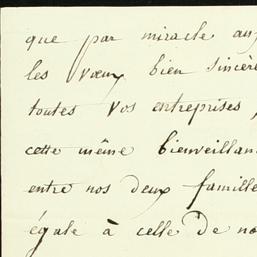 que par miracle au
les vœux bien sincère
toutes vos entreprises,
cette même bienveillan
entre nos deux famille
égale à celle de no